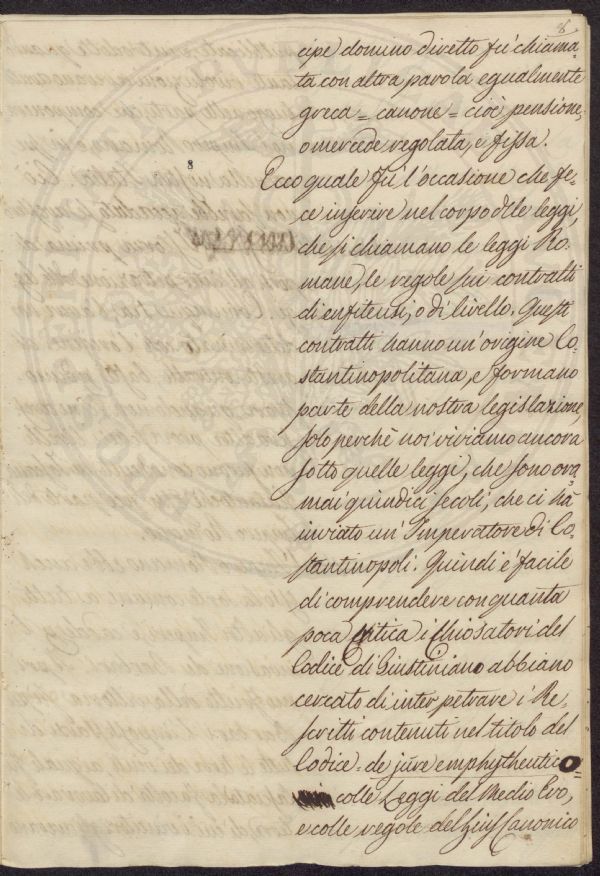 8
cipe domino diretto fu' chiama-
ta con altra parola egualmente
greca = canone = cioè pensione,
o mercede regolata, e fissa.
8
Ecco quale fu' l'occasione che fe-
ce inserire nel corpo delle leggi,
che si chiamano le leggi Ro-
mane, le regole sui contratti
di enfiteusi, o di livello. Questi
contratti hanno un'origine Co-
stantinopolitana, e formano
parte della nostra legislazione,
solo perchè noi viviamo ancora
sotto quelle leggi, che sono ora-
mai quindici secoli, che ci hà
inviato un' Imperatore di Co-
stantinopoli. Quindi è facile
di comprendere con quanta
poca Critica i Chiosatori del
Codice di Giustiniano abbiano
cercato di interpetrare i Re-
scritti contenuti nel titolo del
Codice = de jure emphytheutico =
colle Leggi del Medio Evo,
e colle regole del Gius Canonico